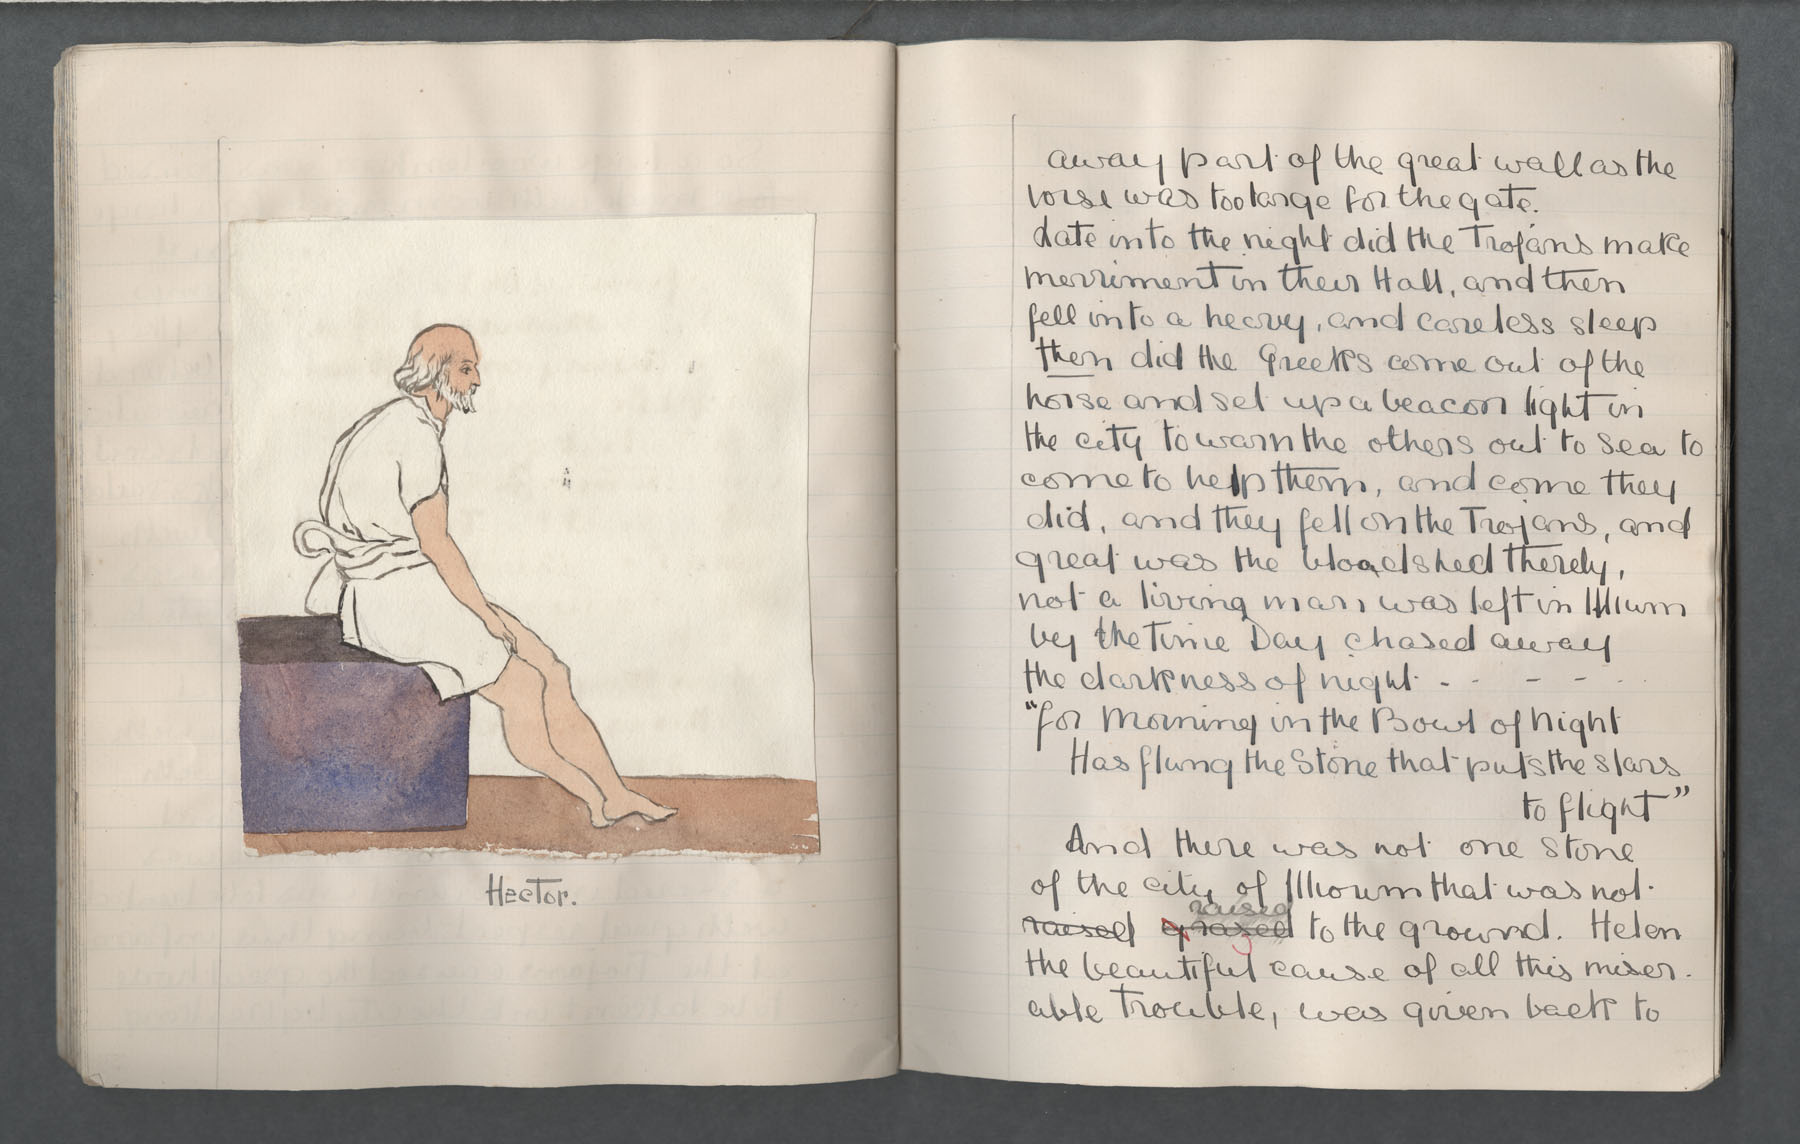 Hector.
away part of the great wall as the
horse was too large for the gate.
Late into the night did the Trojans make
merriment in their Hall, and then
fell into a heavy, and careless sleep
then did the Greeks come out of the
horse and set up a beacon light in
the city to warn the others out to sea to
come to help them, and come they
did, and they fell on the Trojans, and
great was the bloodshed thereby,
not a living man was left in Illium
by the Time Day chased away
the darkness of night - - - - - -
"for Morning in the Bowl of Night
Has flung the Stone that puts the stars
to flight"
And there was not one Stone
of the city of Illioum that was not
raised
raised grazed to the ground. Helen
the beautiful cause of all this miser-
able Trouble, was given back to